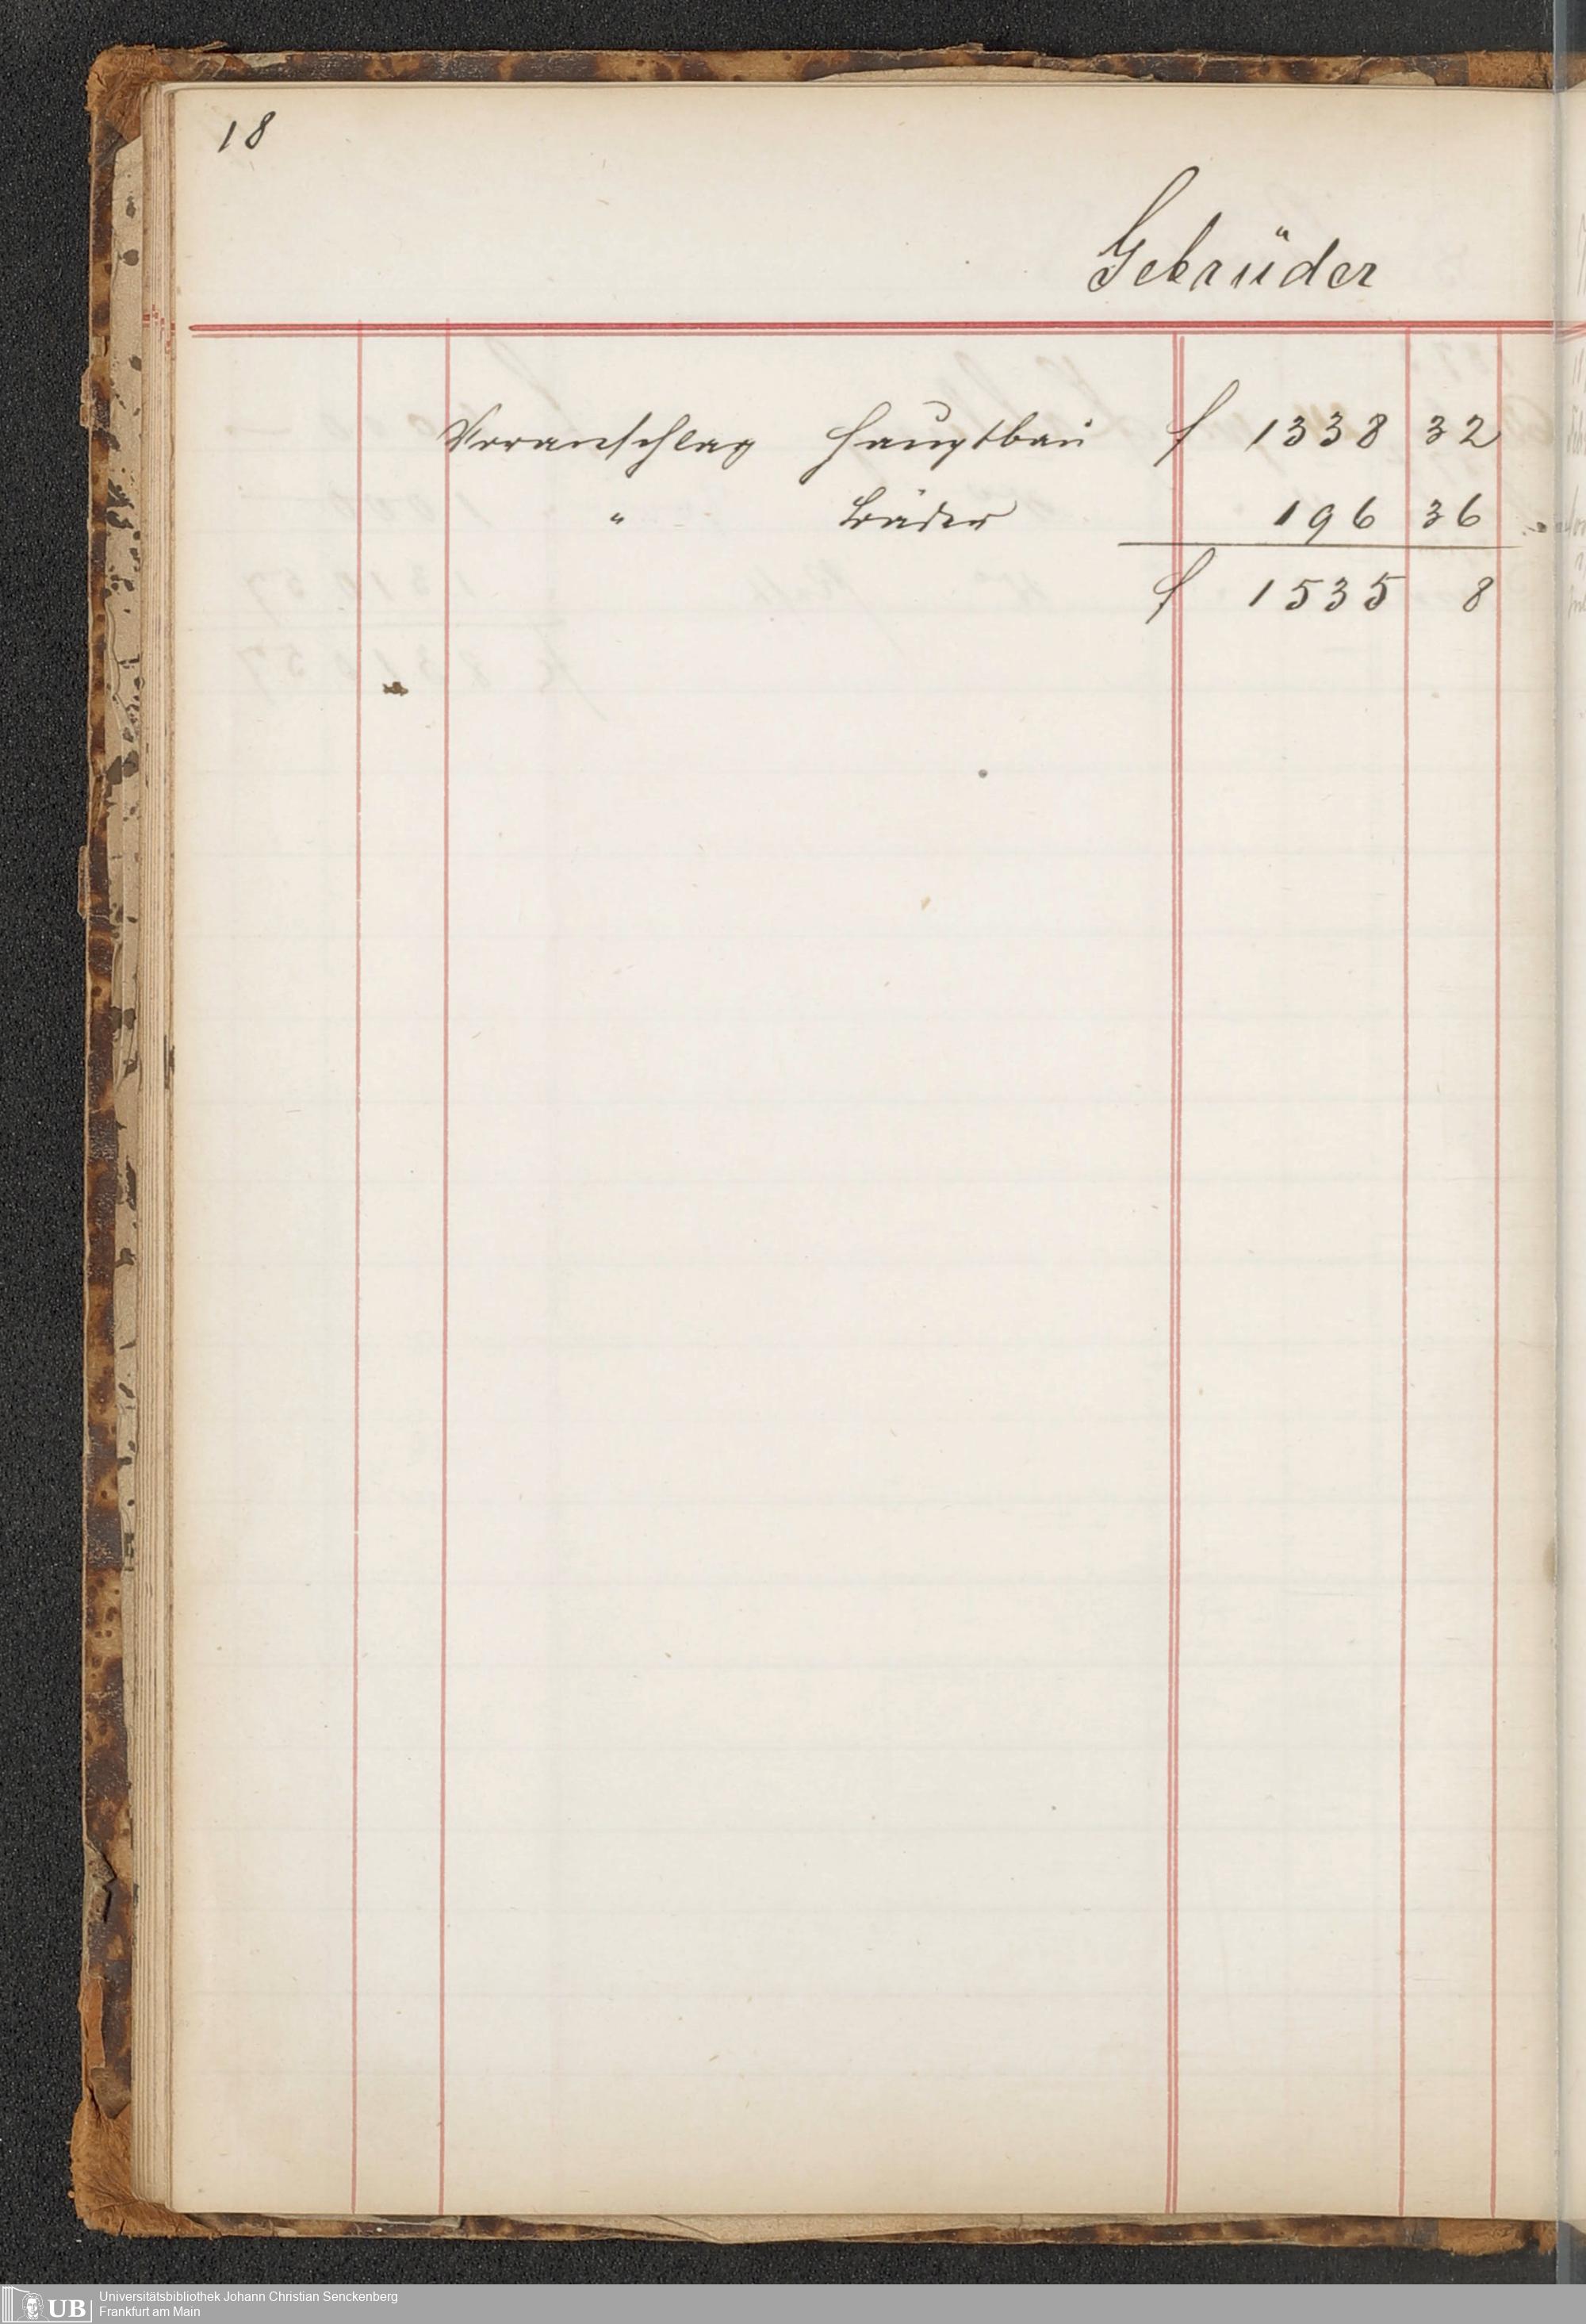 18
Gebrüder
Voranschlag Hauptbau f 1338 32
" Bäder 196 36
f 1535 8
UB Universitätsbibliothek Johann Christian Senckenberg
Frankfurt am Main